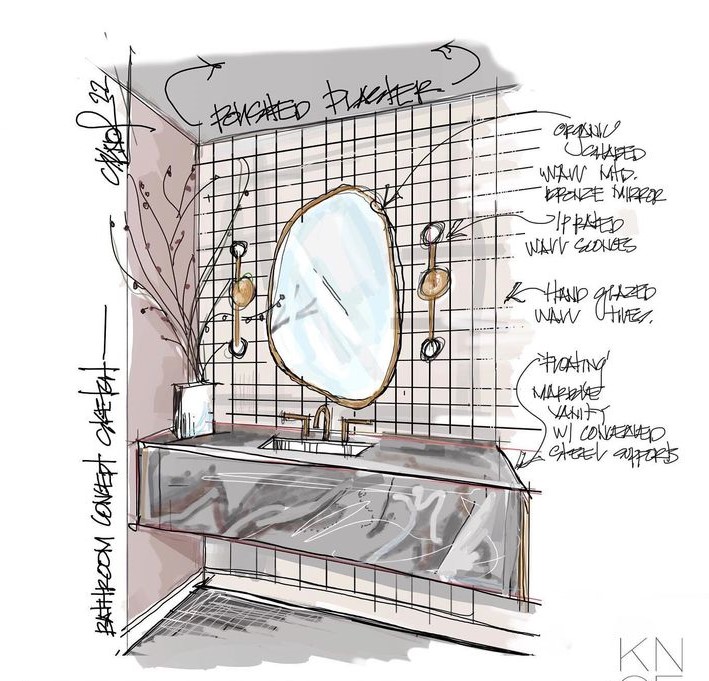 POLISHED PLASTER
'ORGANIC'
SHAPED
WALL MTD.
BRONZE MIRROR
IP RATED
WALL SCONCES
HAND GLAZED
WALL TILES.
'FLOATING'
MARBLE
VANITY
W/ CONCEALED
STEEL SUPPORTS
BATHROOM CONCEPT SKETCH
22
KN